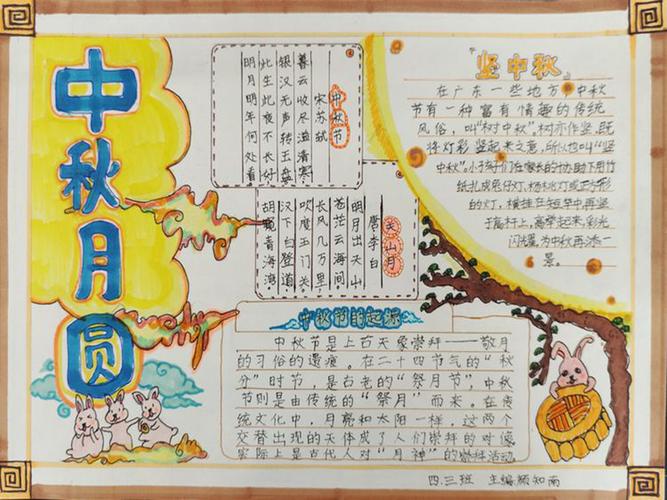 中秋月圆
中秋节
宋苏轼
暮云收尽溢清寒
银汉无声转玉盘
此生此夜不长好
明月明年何处看
关山月
唐李白
明月出天山
苍茫云海间
长风几万里
吹度玉门关
汉下白登道
胡窥青海湾
"竖中秋"
在广东一些地方,中秋
节有一种富有情趣的传统
风俗,叫"树中秋".树亦作竖,既
将灯彩竖起来之意,所以也叫"竖
中秋".小孩子们在家长的协助下用竹
纸扎成兔仔灯、杨桃灯或正方形
的灯,横挂在短竿中再竖
于高杆上,高擎起来,彩光
闪耀,为中秋再添一
景。
中秋节的起源
中秋节是上古天象崇拜——敬月
的习俗的遗痕。在二十四节气的"秋
分"时节,是古老的"祭月节",中秋
节则是由传统的"祭月"而来。在传
统文化中,月亮和太阳一样,这两个
交替出现的天体成了人们崇拜的对象
实际上是古代人对"月神"的崇拜活动
四.三班 主编:顾知南